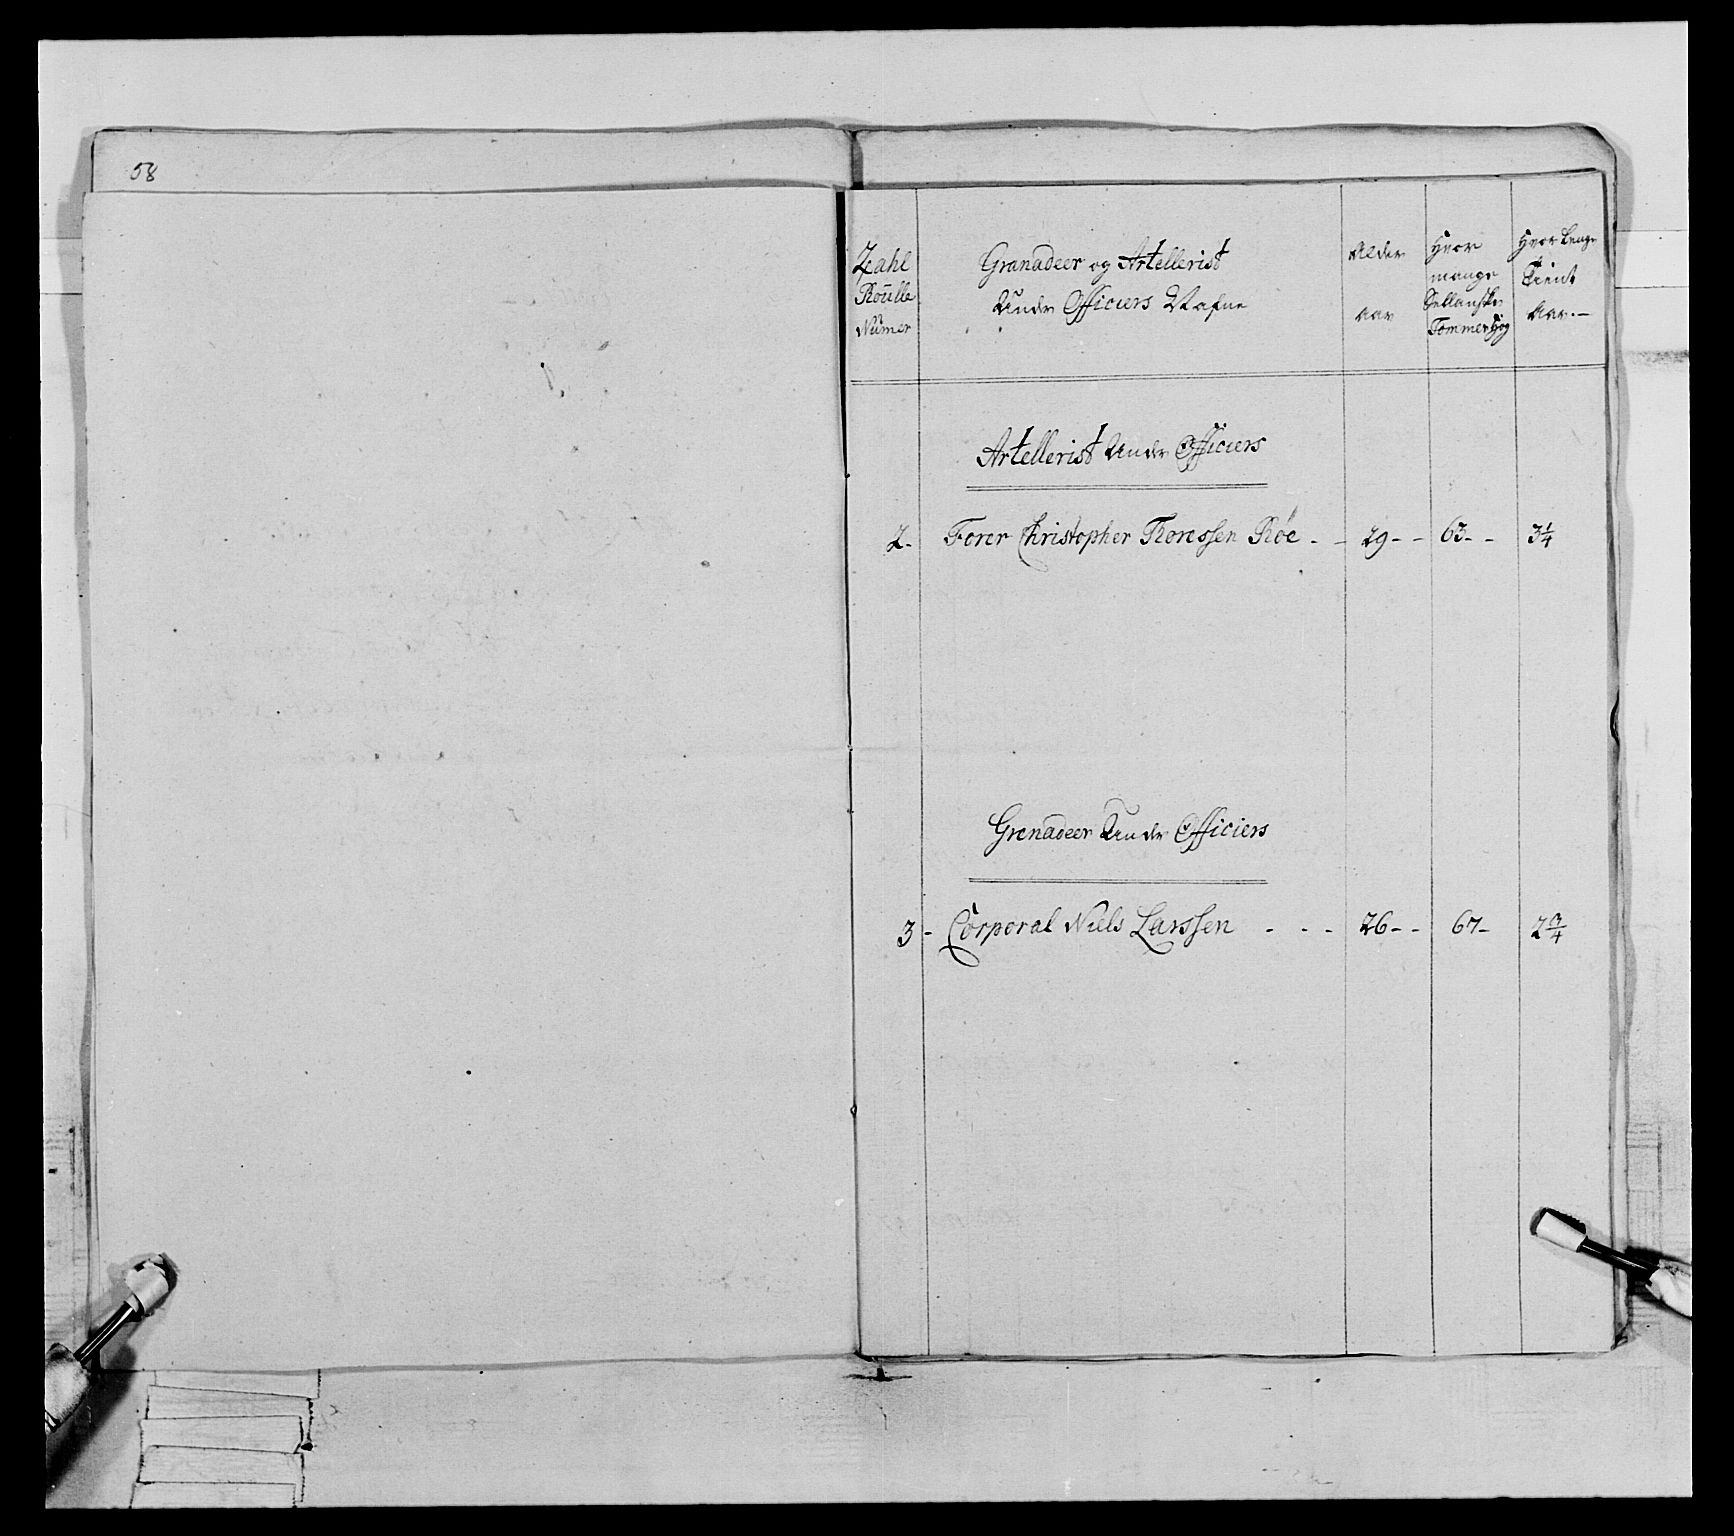 58
Zahl Roulle Numer
Granadeer og Artellerist
Under Officiers Nafne
Alder aar
Hvor mange Sellanske Tommer Høy
Hvor lenge tient Aar.-
Artellerist Under Officiers
2- Forer Christopher Thoressen Röe - - 29 - - 63 - - 3 1/4
Grenadeer Under Officiers
3 - Corporal Niels Larssen - - - 26 - - 67 - 2 3/4